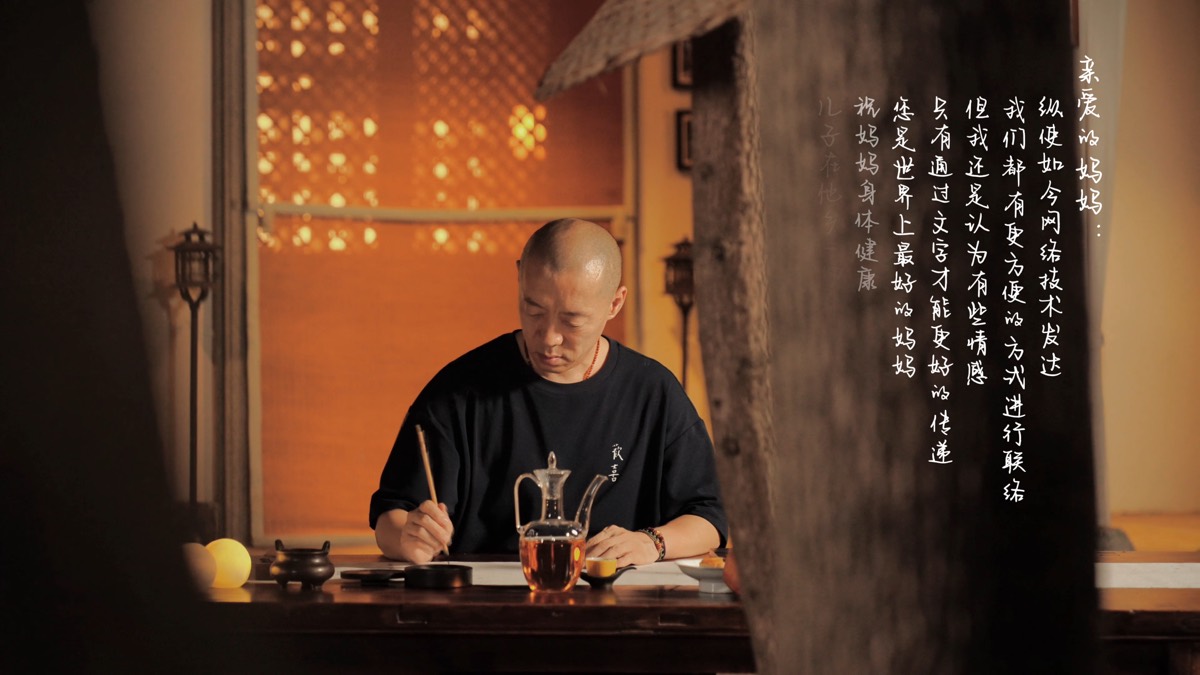 亲爱的妈妈：
纵使如今网络技术发达
我们都有更方便的方式进行联络
但我还是认为有些情感
只有通过文字才能更好的传递
您是世界上最好的妈妈
祝妈妈身体健康
儿子在他
喜